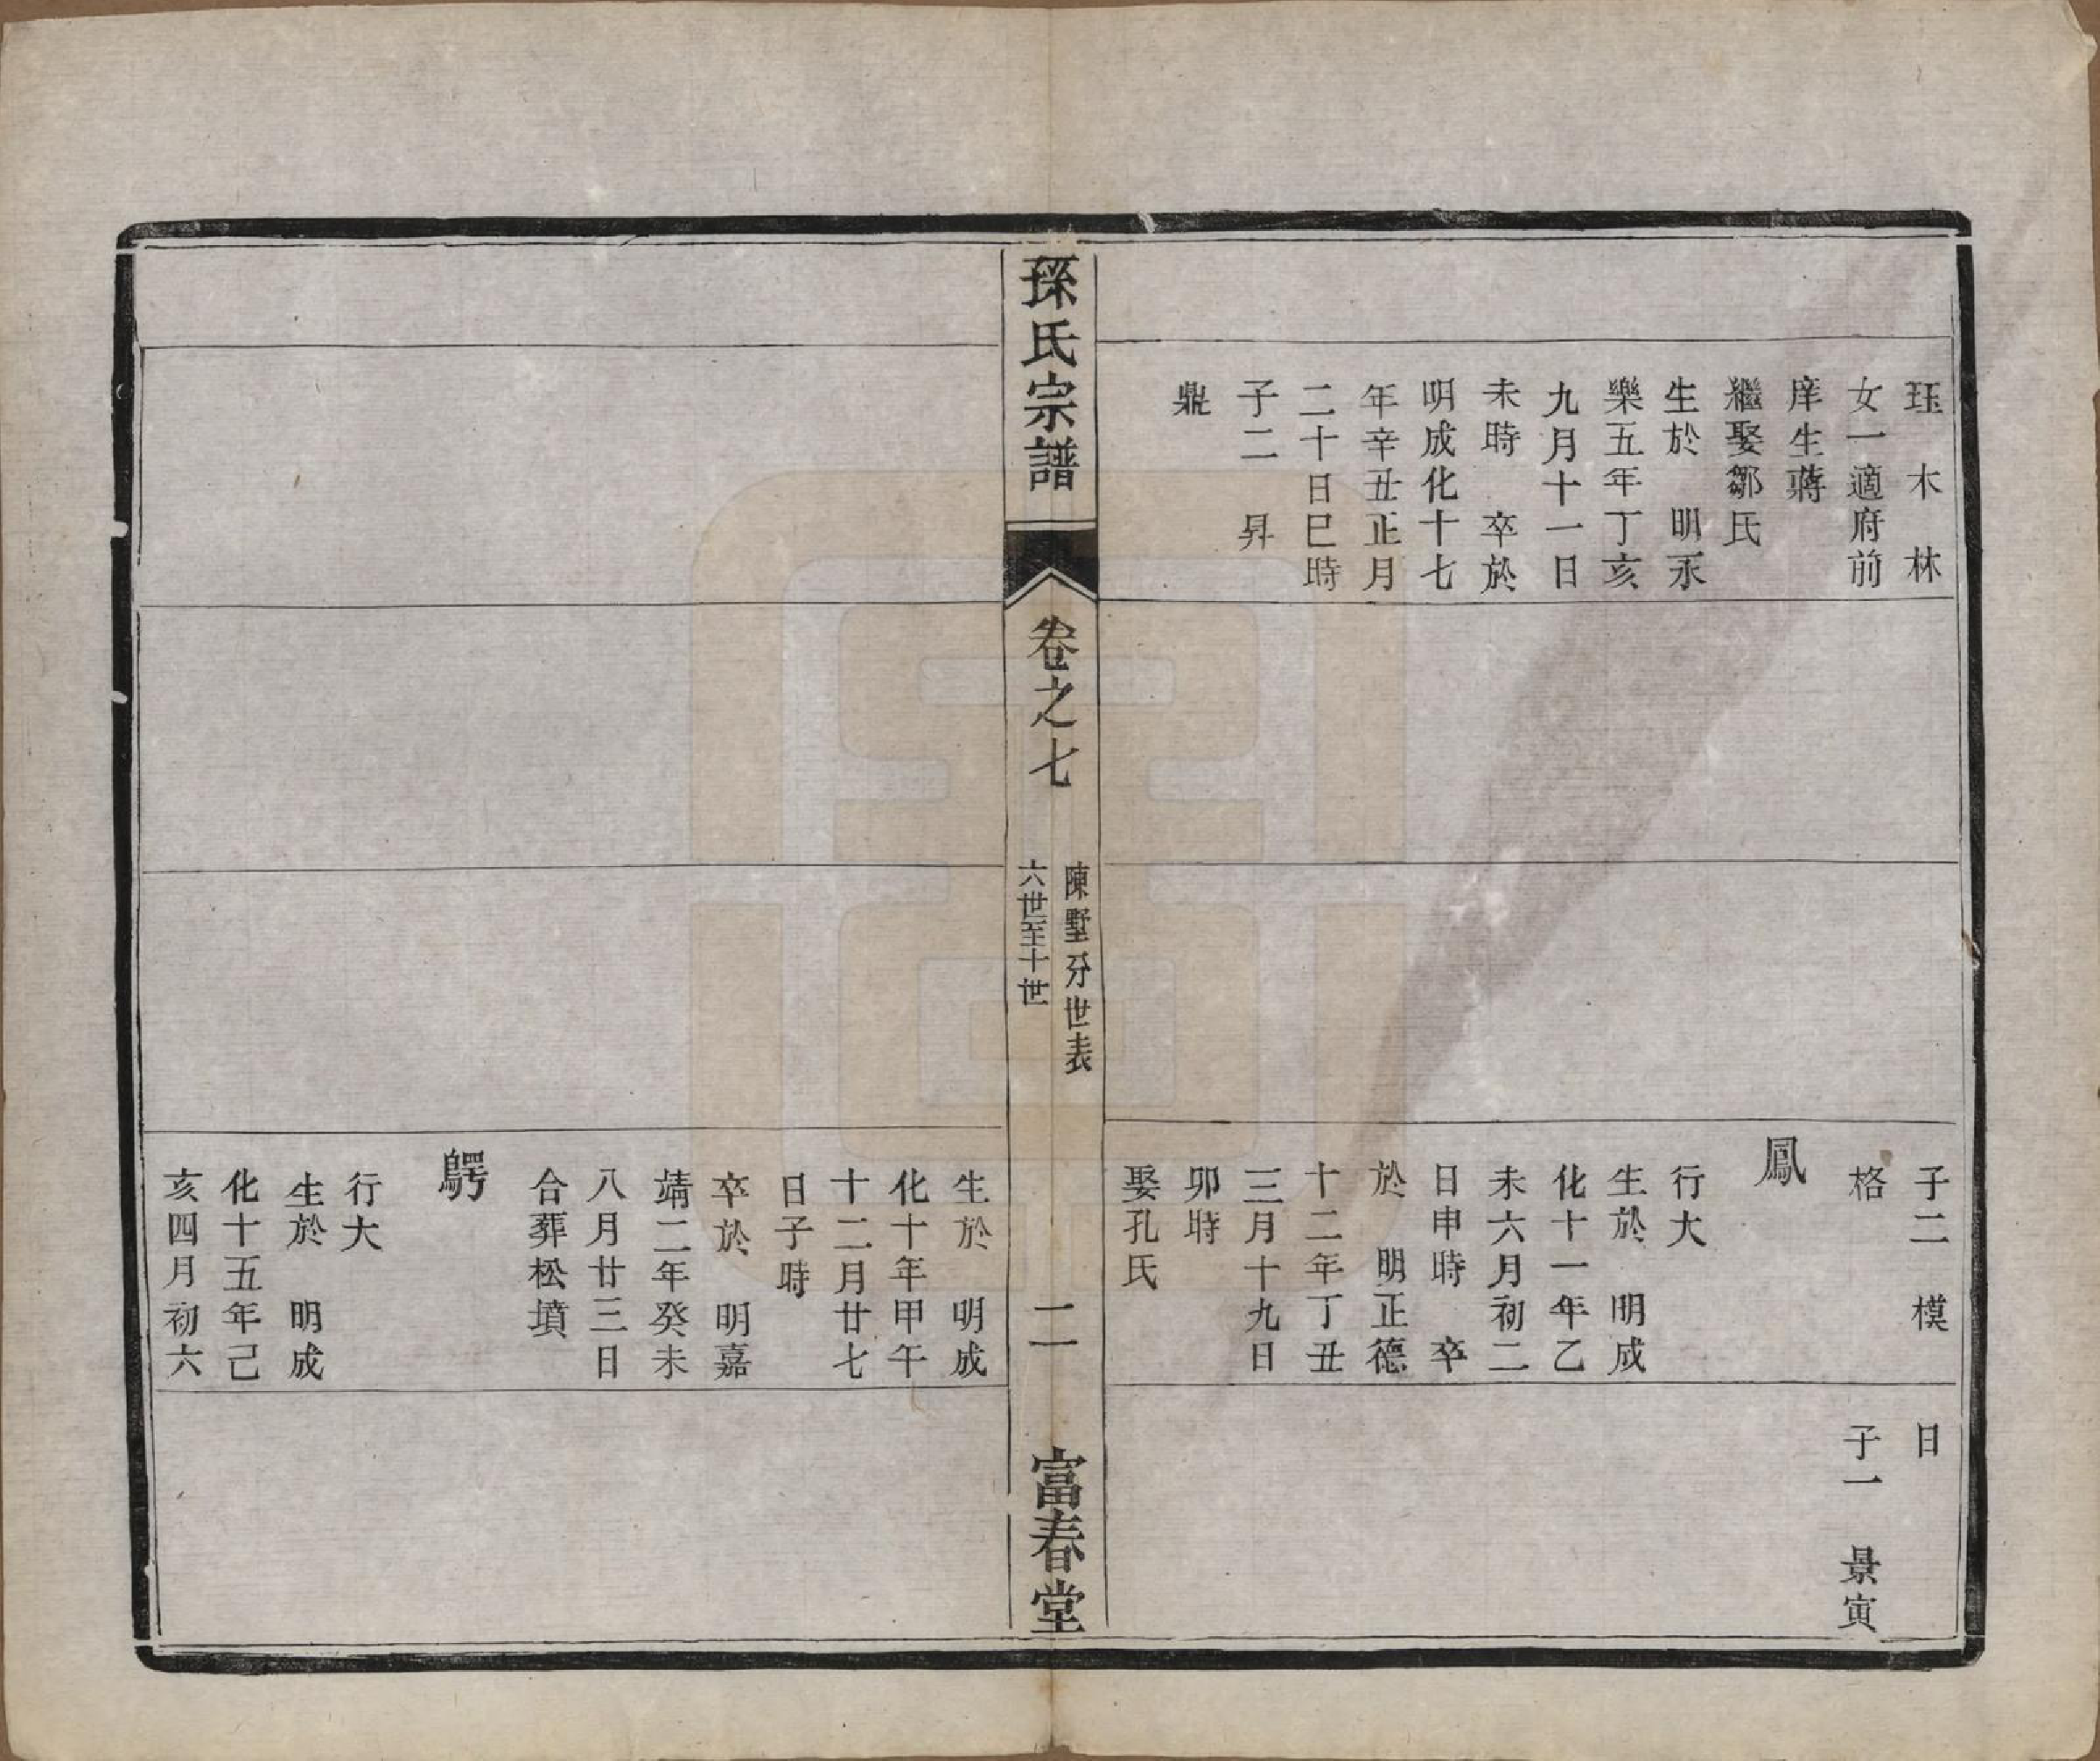 珏 木 林
女一適府前
庠生蔣
繼娶鄒氏
生於 明永
樂五年丁亥
九月十一日
未時 卒於
明成化十七
年辛丑正月
二十日巳時
子二 昇
鼎
子二 模
格
鳳
行大
生於 明成
化十一年乙
未六月初二
日申時 卒
於 明正德
十二年丁丑
三月十九日
卯時
娶孔氏
日
子一 景寅
孫氏宗譜
卷之七
陳墅分世表
六世至十世
二
富春堂
生於 明成
化十年甲午
十二月廿七
日子時
卒於 明嘉
靖二年癸未
八月廿三日
合葬松墳
鶚
行大
生於 明成
化十五年己
亥四月初六